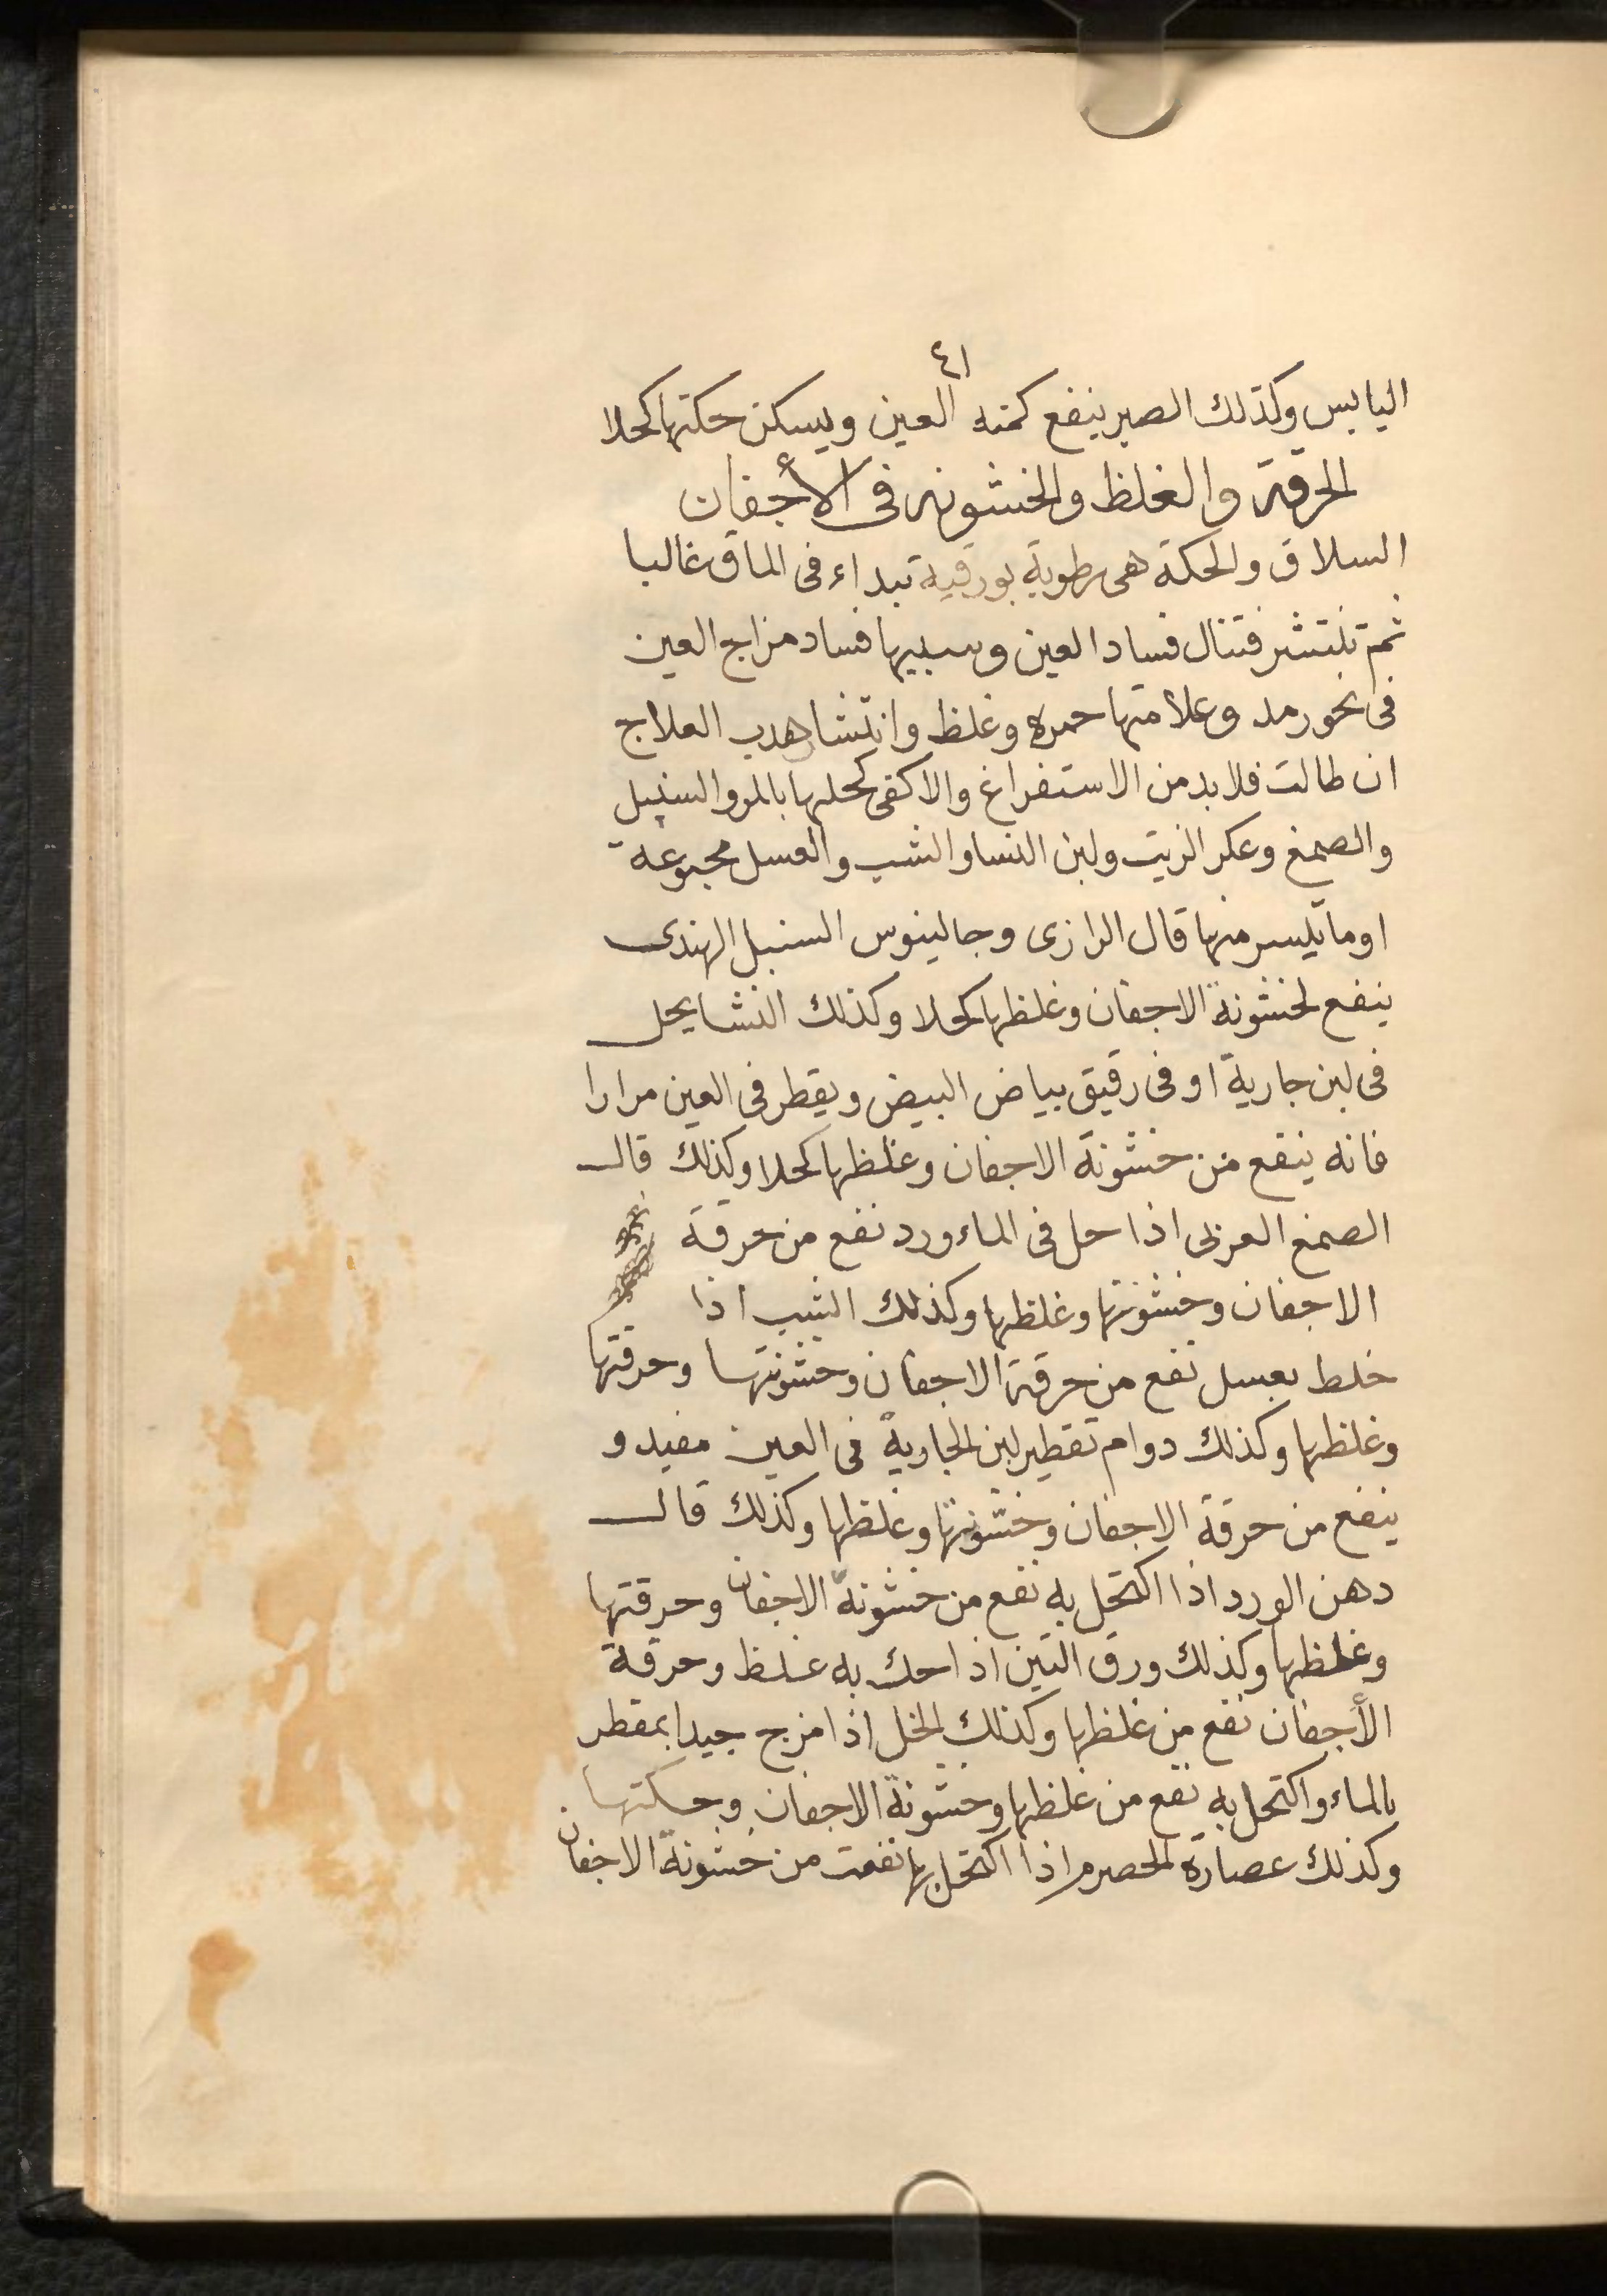 ٤١
اليابس وكذلك الصبر ينفع كمنه العين ويسكن حكتها كحلا
الحرقة والغلظ والخشونه فى الأجفان
السلاق والحكة هى رطوبة بورقية تبداء فى الماق غالبا
ثم تنتشر فتنال فساد العين وسببها فساد مزاج العين
فى نحو رمد وعلامتها حمرة وغلظ وانتشا هدب العلاج
ان طالت فلا بد من الاستفراغ والا كفى كحلها بالمر والسنبل
والصمغ وعكر الزيت ولبن النسا والشب والعسل مجموعة
او ما تيسر منها قال الرازى وجالينوس السنبل الهندى
ينفع لخشونة الاجفان وغلظها كحلا وكذلك النشا يحل
فى لبن جارية او فى رقيق بياض البيض ويقطر فى العين مرارا
فانه ينفع من خشونة الاجفان وغلظها كحلا وكذلك قال
الصمغ العربى اذا حل فى الماء ورد نفع من حرقة
الاجفان وخشونتها وغلظها وكذلك الشب اذا
خلط بعسل نفع من حرقة الاجفان وخشونتها وحرقتها
وغلظها وكذلك دوام تقطير لبن الجارية فى العين مفيد و
ينفع من حرقة الاجفان وخشونتها وغلظها وكذلك قال
دهن الورد اذا اكتحل به نفع من خشونة الاجفان وحرقتها
وغلظها وكذلك ورق التين اذا حك به غلظ وحرقة
الأجفان نفع من غلظها وكذلك الخل اذا مزج جيدا بمقطر
بالماء واكتحل به نفع من غلظها وخشونة الاجفان وحكتها
وكذلك عصارة الحصرم اذا اكتحل بها نفعت من خشونة الاجفان